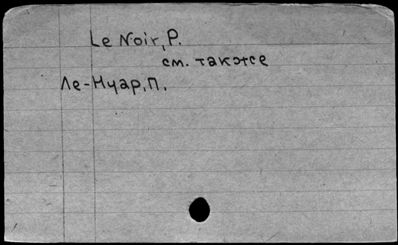 Le Noir, P.
см. также
Ле-Нуар, П.